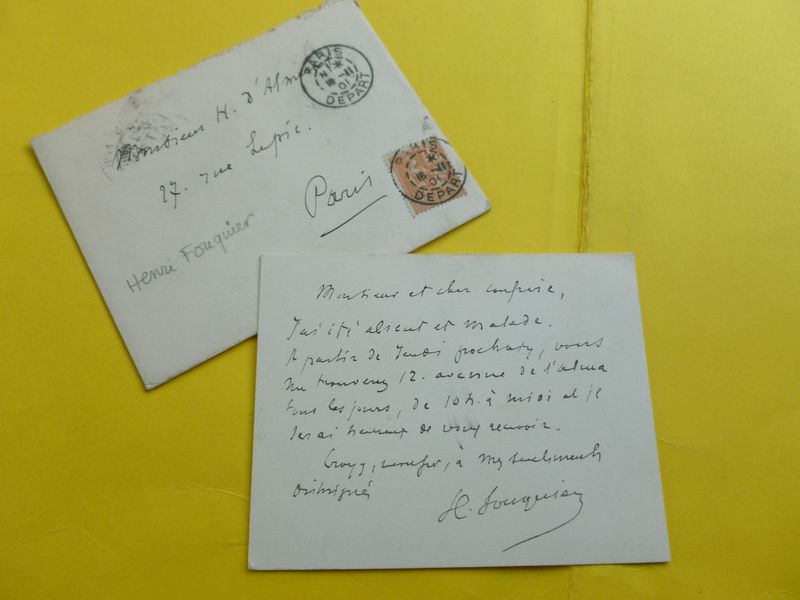 PARIS
18 -11
01
DEPART
Monsieur H. d'Alm
27. rue Lepic.
Paris
PARIS
18 -11
01
DEPART
Henri Fouquier
Monsieur et cher confrère,
J'ai été absent et malade.
A partir de Jeudi prochain, vous
me trouverez 12. avenue de l'alma
tous les jours, de 10 h. à midi et je
serai heureux de vous recevoir.
Croyez, confrère, à mes sentiments
distingués
H. Fouquier